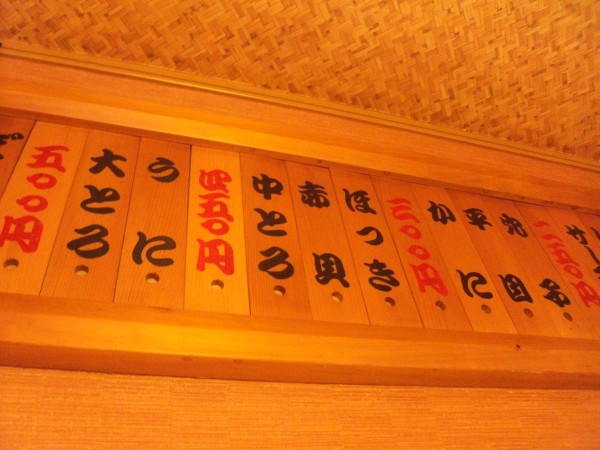 二五〇円
穴子
平目
かに
三〇〇円
ほっき
赤貝
中とろ
四五〇円
うに
大とろ
五〇〇円